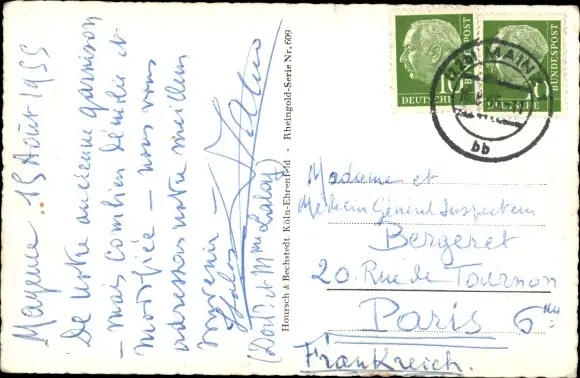 Mayence .. 15 Août 1955
De notre ancienne garnison
– mais combien démolie et
modifiée – nous vous
adressons notre meilleur
souvenir
(Doct? et Mme Lalo
Hoursch & Bechstedt, Köln-Ehrenfeld - Rheingold-Serie Nr. 609
10
DEUTSCHE
BUNDESPOST
DEUTSCHE
BUNDESPOST
MAIN
bb
Madame et
Médecin Général Inspecteur
Bergeret
20. Rue de Tournon
Paris 6me
Frankreich.